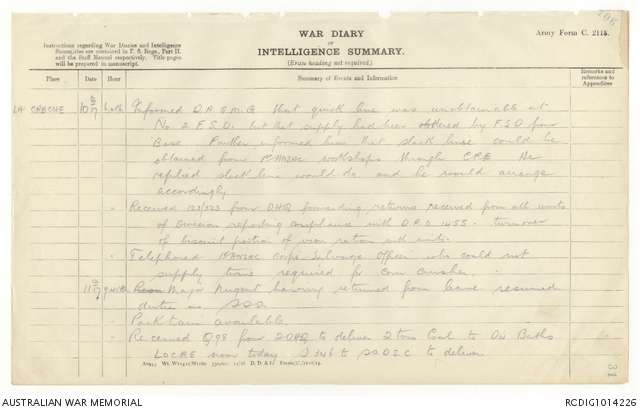 WAR DIARY
or
INTELLIGENCE SUMMARY.
(Erase heading not required.)
Army Form C. 2118.
Instructions regarding War Diaries and Intelligence
Summaries are contained in F. S. Regs., Part II.
and the Staff Manual respectively. Title pages
will be prepared in manuscript.
Place
Date
Hour
Summary of Events and Information
Remarks and
references to
Appendices
LA CRECHE
10
Informed D.A.Q.M.G that quick lime was unobtainable at
No. 2 F.S.D. but that supply had been ordered by F.S.D from
Base. Further informed him that slack lime could be
obtained from workshops through C.R.E. He
replied slack lime would do and he would arrange
accordingly
" Received 123/523 from DHQ forwarding returns received from all units
of Division reporting compliance with D.R.O 1455 - turnover
of biscuit portion of iron ration with units.
" Telephoned Corps Salvage Officer who could not
supply tins required for corn crusher.
11 Major Nugent having returned from leave resumed
duties as S.S.O.
" Pack train available
" Received Q98 from 2DHQ to deliver 2 tons Coal to Baths
LOCRE now today. S346 to to deliver
RCDIG1014226
AUSTRALIAN WAR MEMORIAL